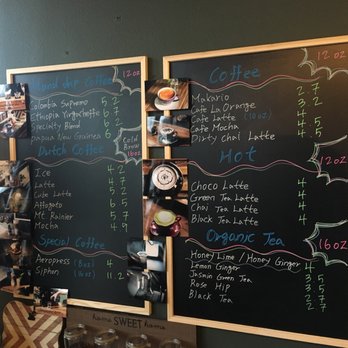 Hand drip Coffee 12oz
Colombia Supremo 5.2
Ethiopia Yirgacheffe 6.2
Specialty Blend
Papua New Guinea
Cold Brew 16oz
Dutch Coffee
Ice 4
Latte 4
Cafe Latte
Affogato
Mt. Rainier
Mocha
Special Coffee
Aeropress (8oz) 4
Siphon (16oz) 11.2
home SWEET home
Coffee 12oz
Makario 2.7
Cafe La Orange 3.2
Cafe Latte (10oz)
Cafe Mocha
Dirty chai Latte 4.5
Hot 12oz
Choco Latte 4
Green Tea Latte
Chai Tea Latte 4
Black Tea Latte
Organic Tea 16oz
Honey Lime / Honey Ginger 4
Lemon Ginger
Jasmin Green Tea
Rose Hip
Black Tea 2.7